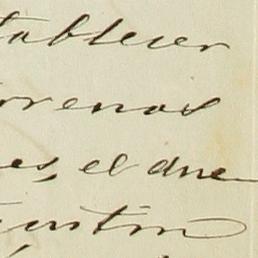 tablecer
rrenos
es, el due
ustin